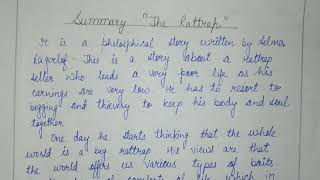 Summary "The Rattrap"
It is a philosiphical story written by Selma
Lagerlof. This is a story (about a rattrap
seller who leads a very poor life as his
earnings are very low. He has to resort to
begging and thievry to keep his body and soul
together.
One day he starts thinking that the whole
world is a big rattrap. His views are that
the world offers us various types of baits
of